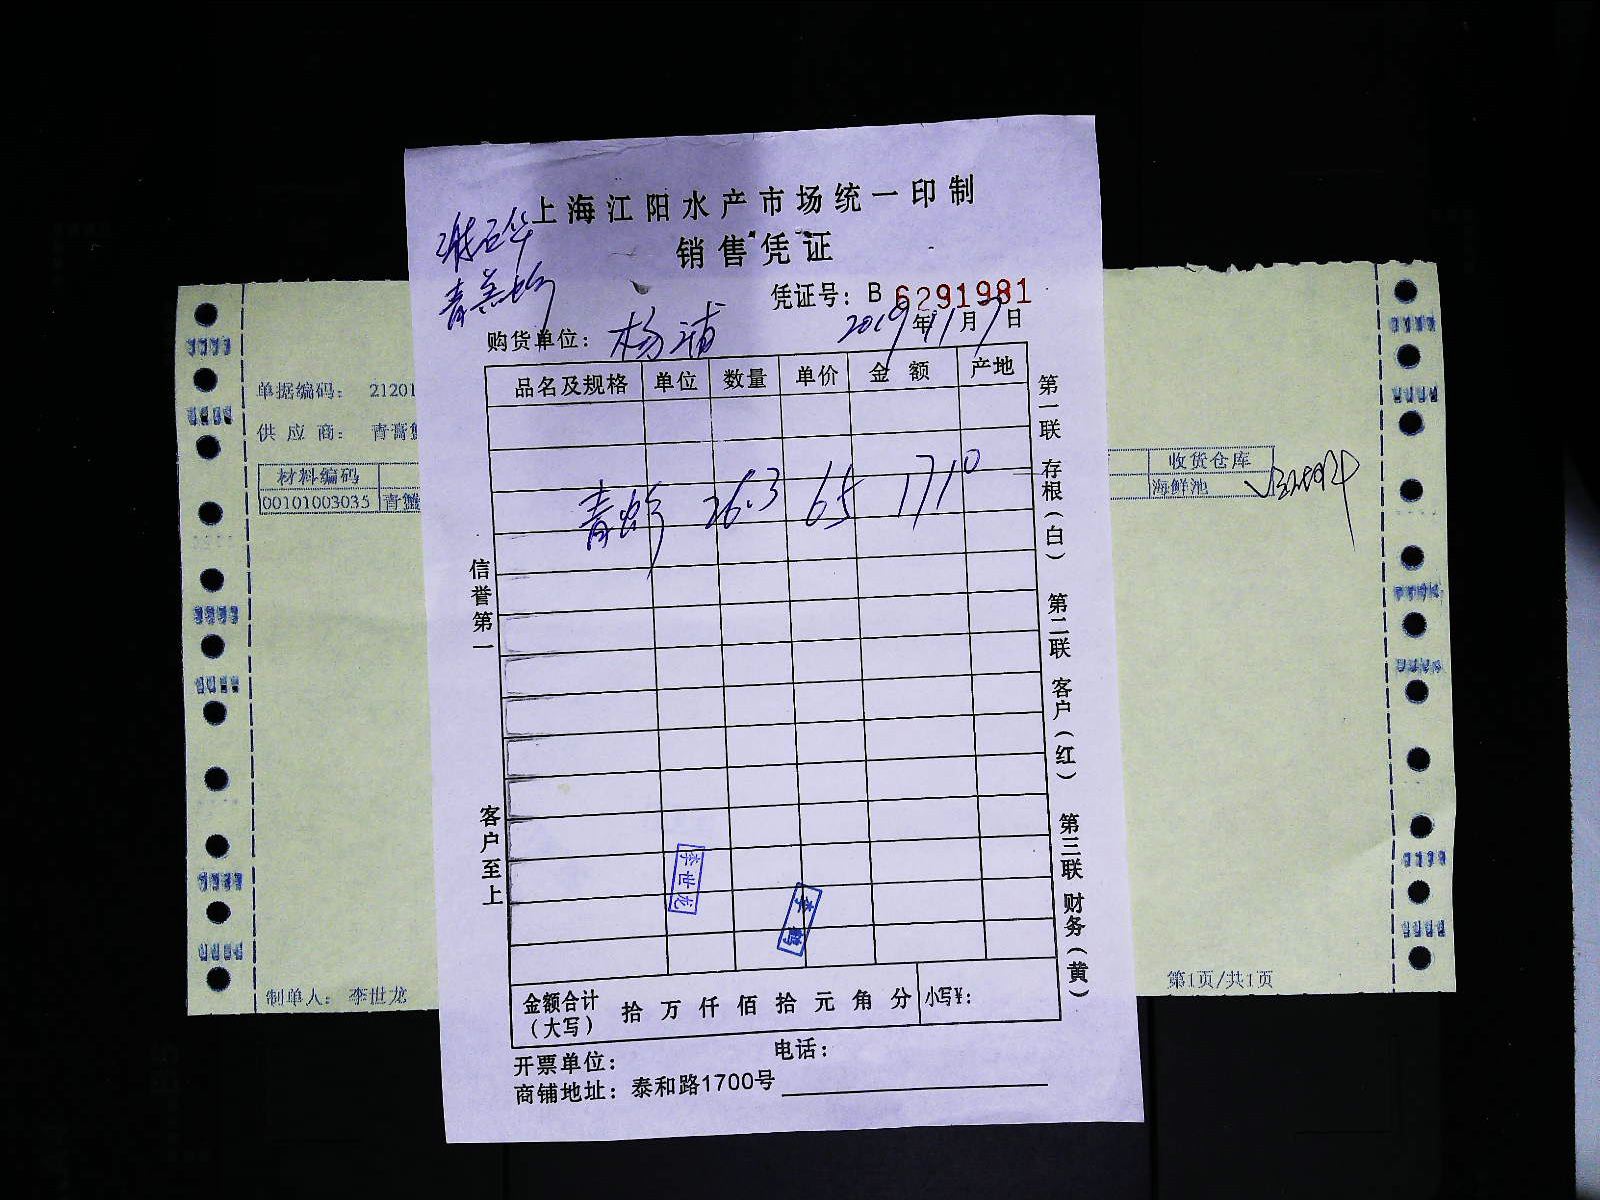 上海江阳水产市场统一印制
销售凭证
凭证号：B 6291981
购货单位：杨浦 2019年11月7日
品名及规格 单位 数量 单价 金额 产地
青蟹 26.3 65 1710
信誉第一
客户至上
第一联 存根（白） 第二联 客户（红） 第三联 财务（黄）
李世龙
李鹤
金额合计（大写） 拾 万 仟 佰 拾 元 角 分 小写¥：
开票单位： 电话：
商铺地址：泰和路1700号
单据编码： 21201
供应商： 青膏
材料编码 收货仓库
00101003035 青蟹 海鲜池
制单人： 李世龙
第1页/共1页